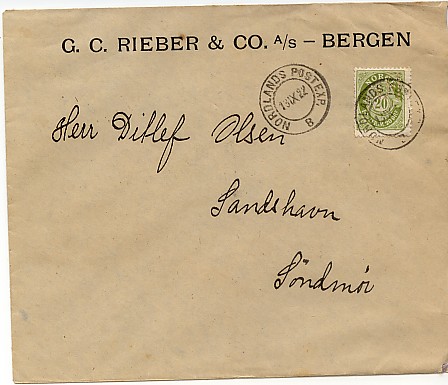 G. C. RIEBER & CO. A/S – BERGEN
NORDLANDS POSTEXP. B
13 IX 22
NORGE
20
Herr Ditlef Olsen
Sandshavn
Söndmör